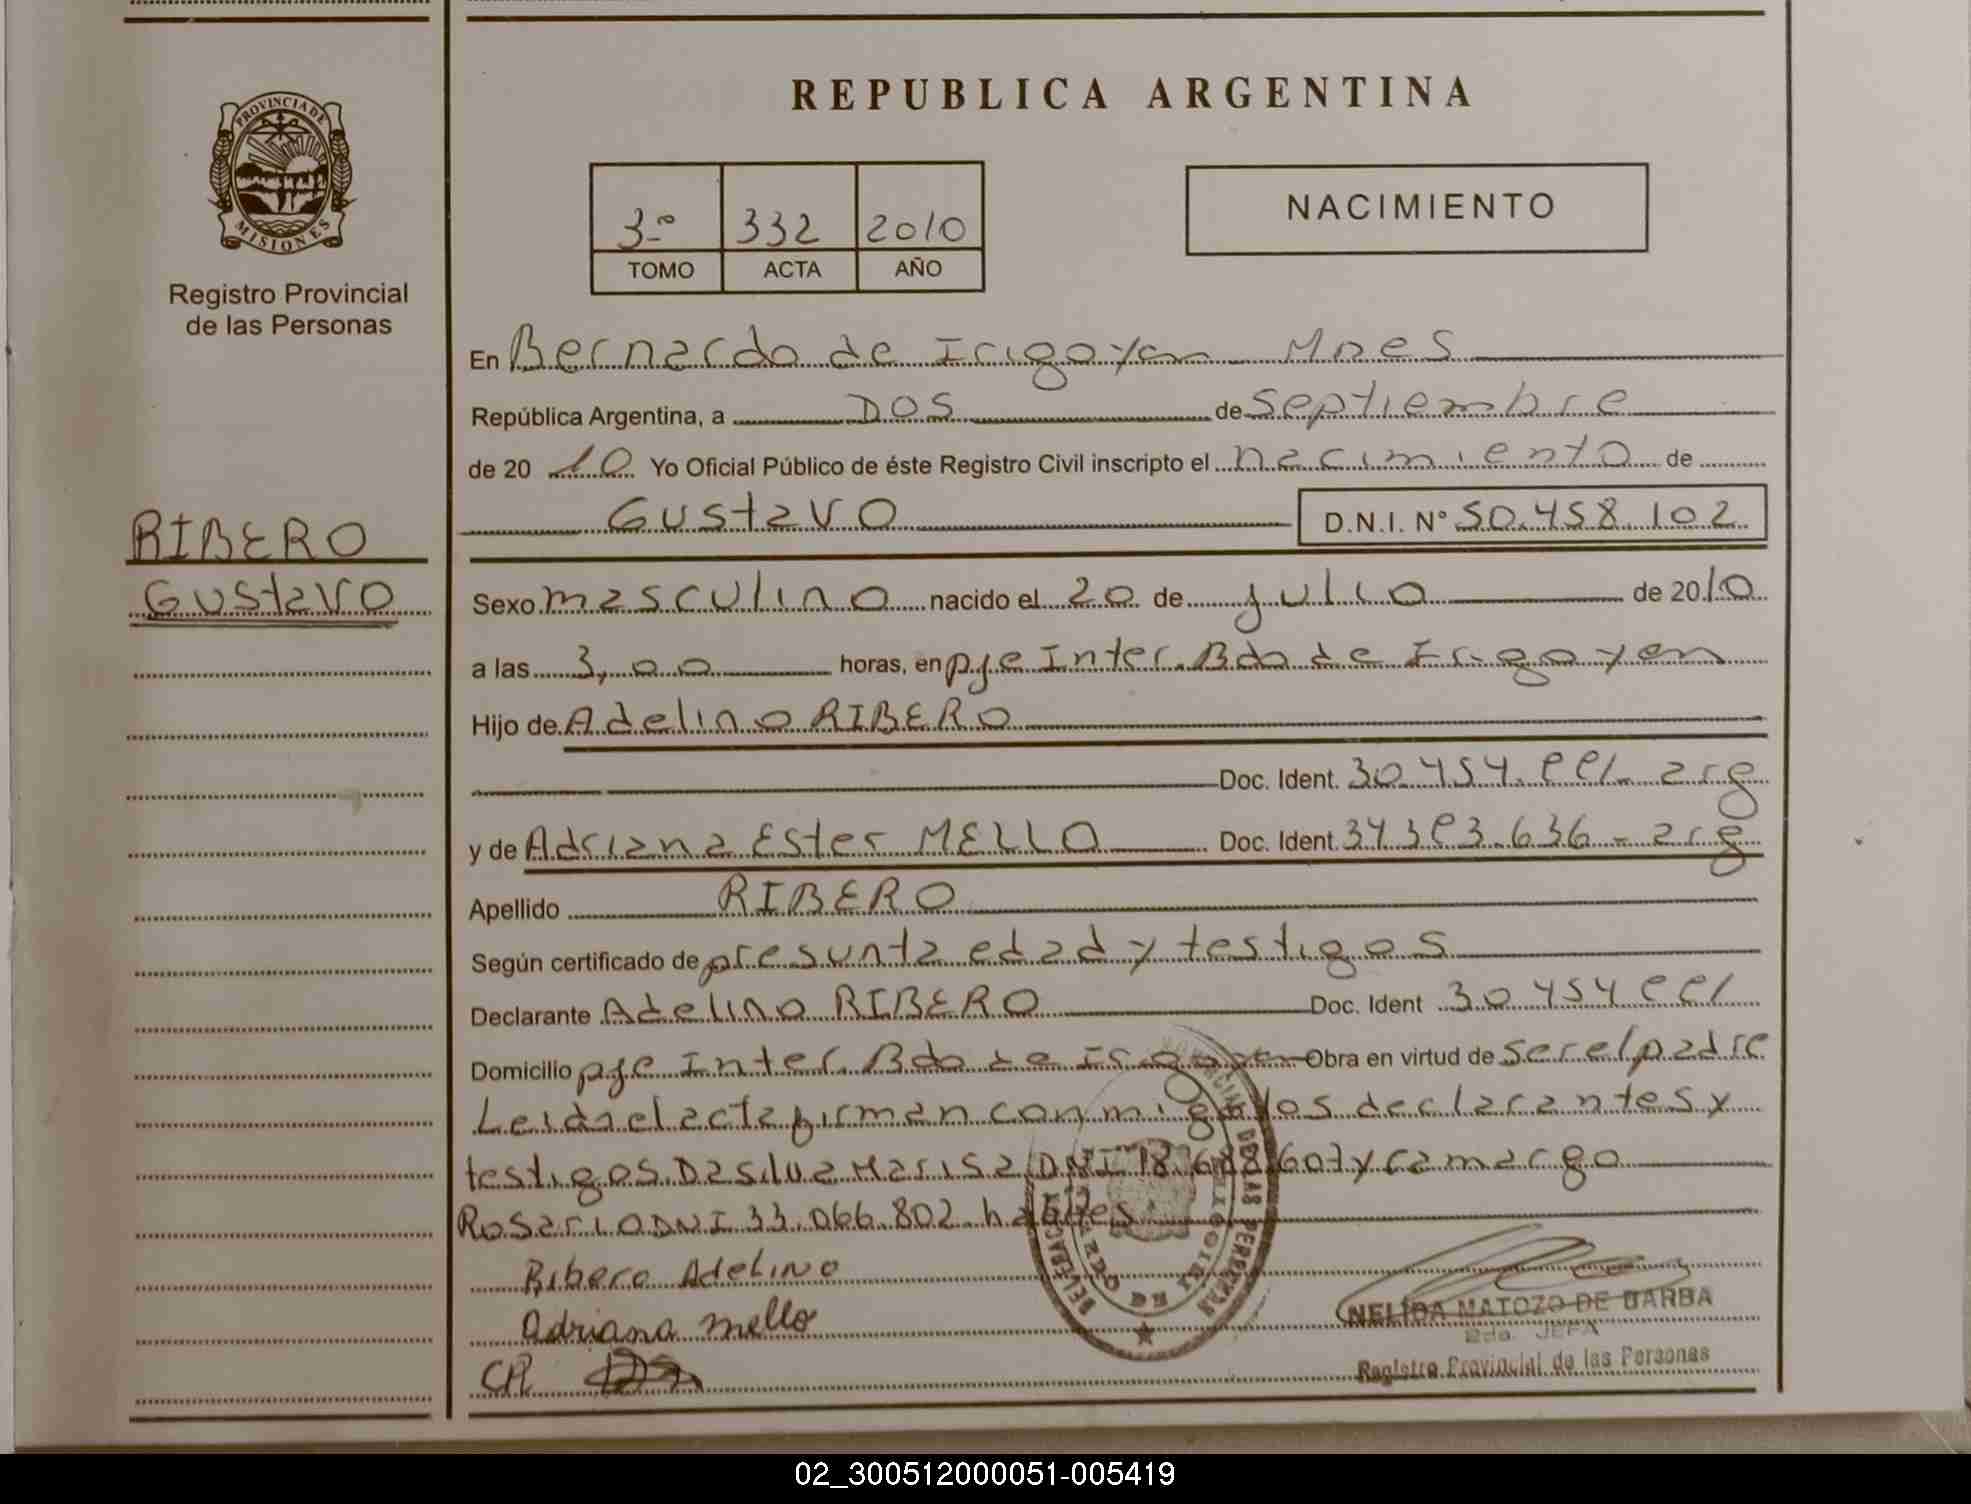 REPUBLICA ARGENTINA
PROVINCIA DE
MISIONES
Registro Provincial
de las Personas
3º 332 2010
TOMO ACTA AÑO
NACIMIENTO
En Bernardo de Irigoyen Mnes
República Argentina, a DOS de septiembre
de 20 10 Yo Oficial Público de éste Registro Civil inscripto el nacimiento de
Gustavo D.N.I. N° 50.458.102
RIBERO
Gustavo
Sexo masculino nacido el 20 de julio de 2010
a las 3,00 horas, en pje Inter. Bdo de Irigoyen
Hijo de Adelino RIBERO
Doc. Ident. 30.454. arg
y de Adriana Ester MELLO Doc. Ident. 636 - arg
Apellido RIBERO
Según certificado de presunta edad y testigos
Declarante Adelino RIBERO Doc. Ident 30 454
Domicilio pje Inter. Bdo de Irigoyen Obra en virtud de ser el padre
Leida el acta firman conmigo los declarantes y
testigos Dasilva Marisa DNI 18.688.607 y camargo
Rosario DNI 33.066.802 habiles
Ribero Adelino
Adriana mello
CR
NELIDA MATOZO DE BARBA
2da. JEFA
Registro Provincial de las Personas
02_300512000051-005419